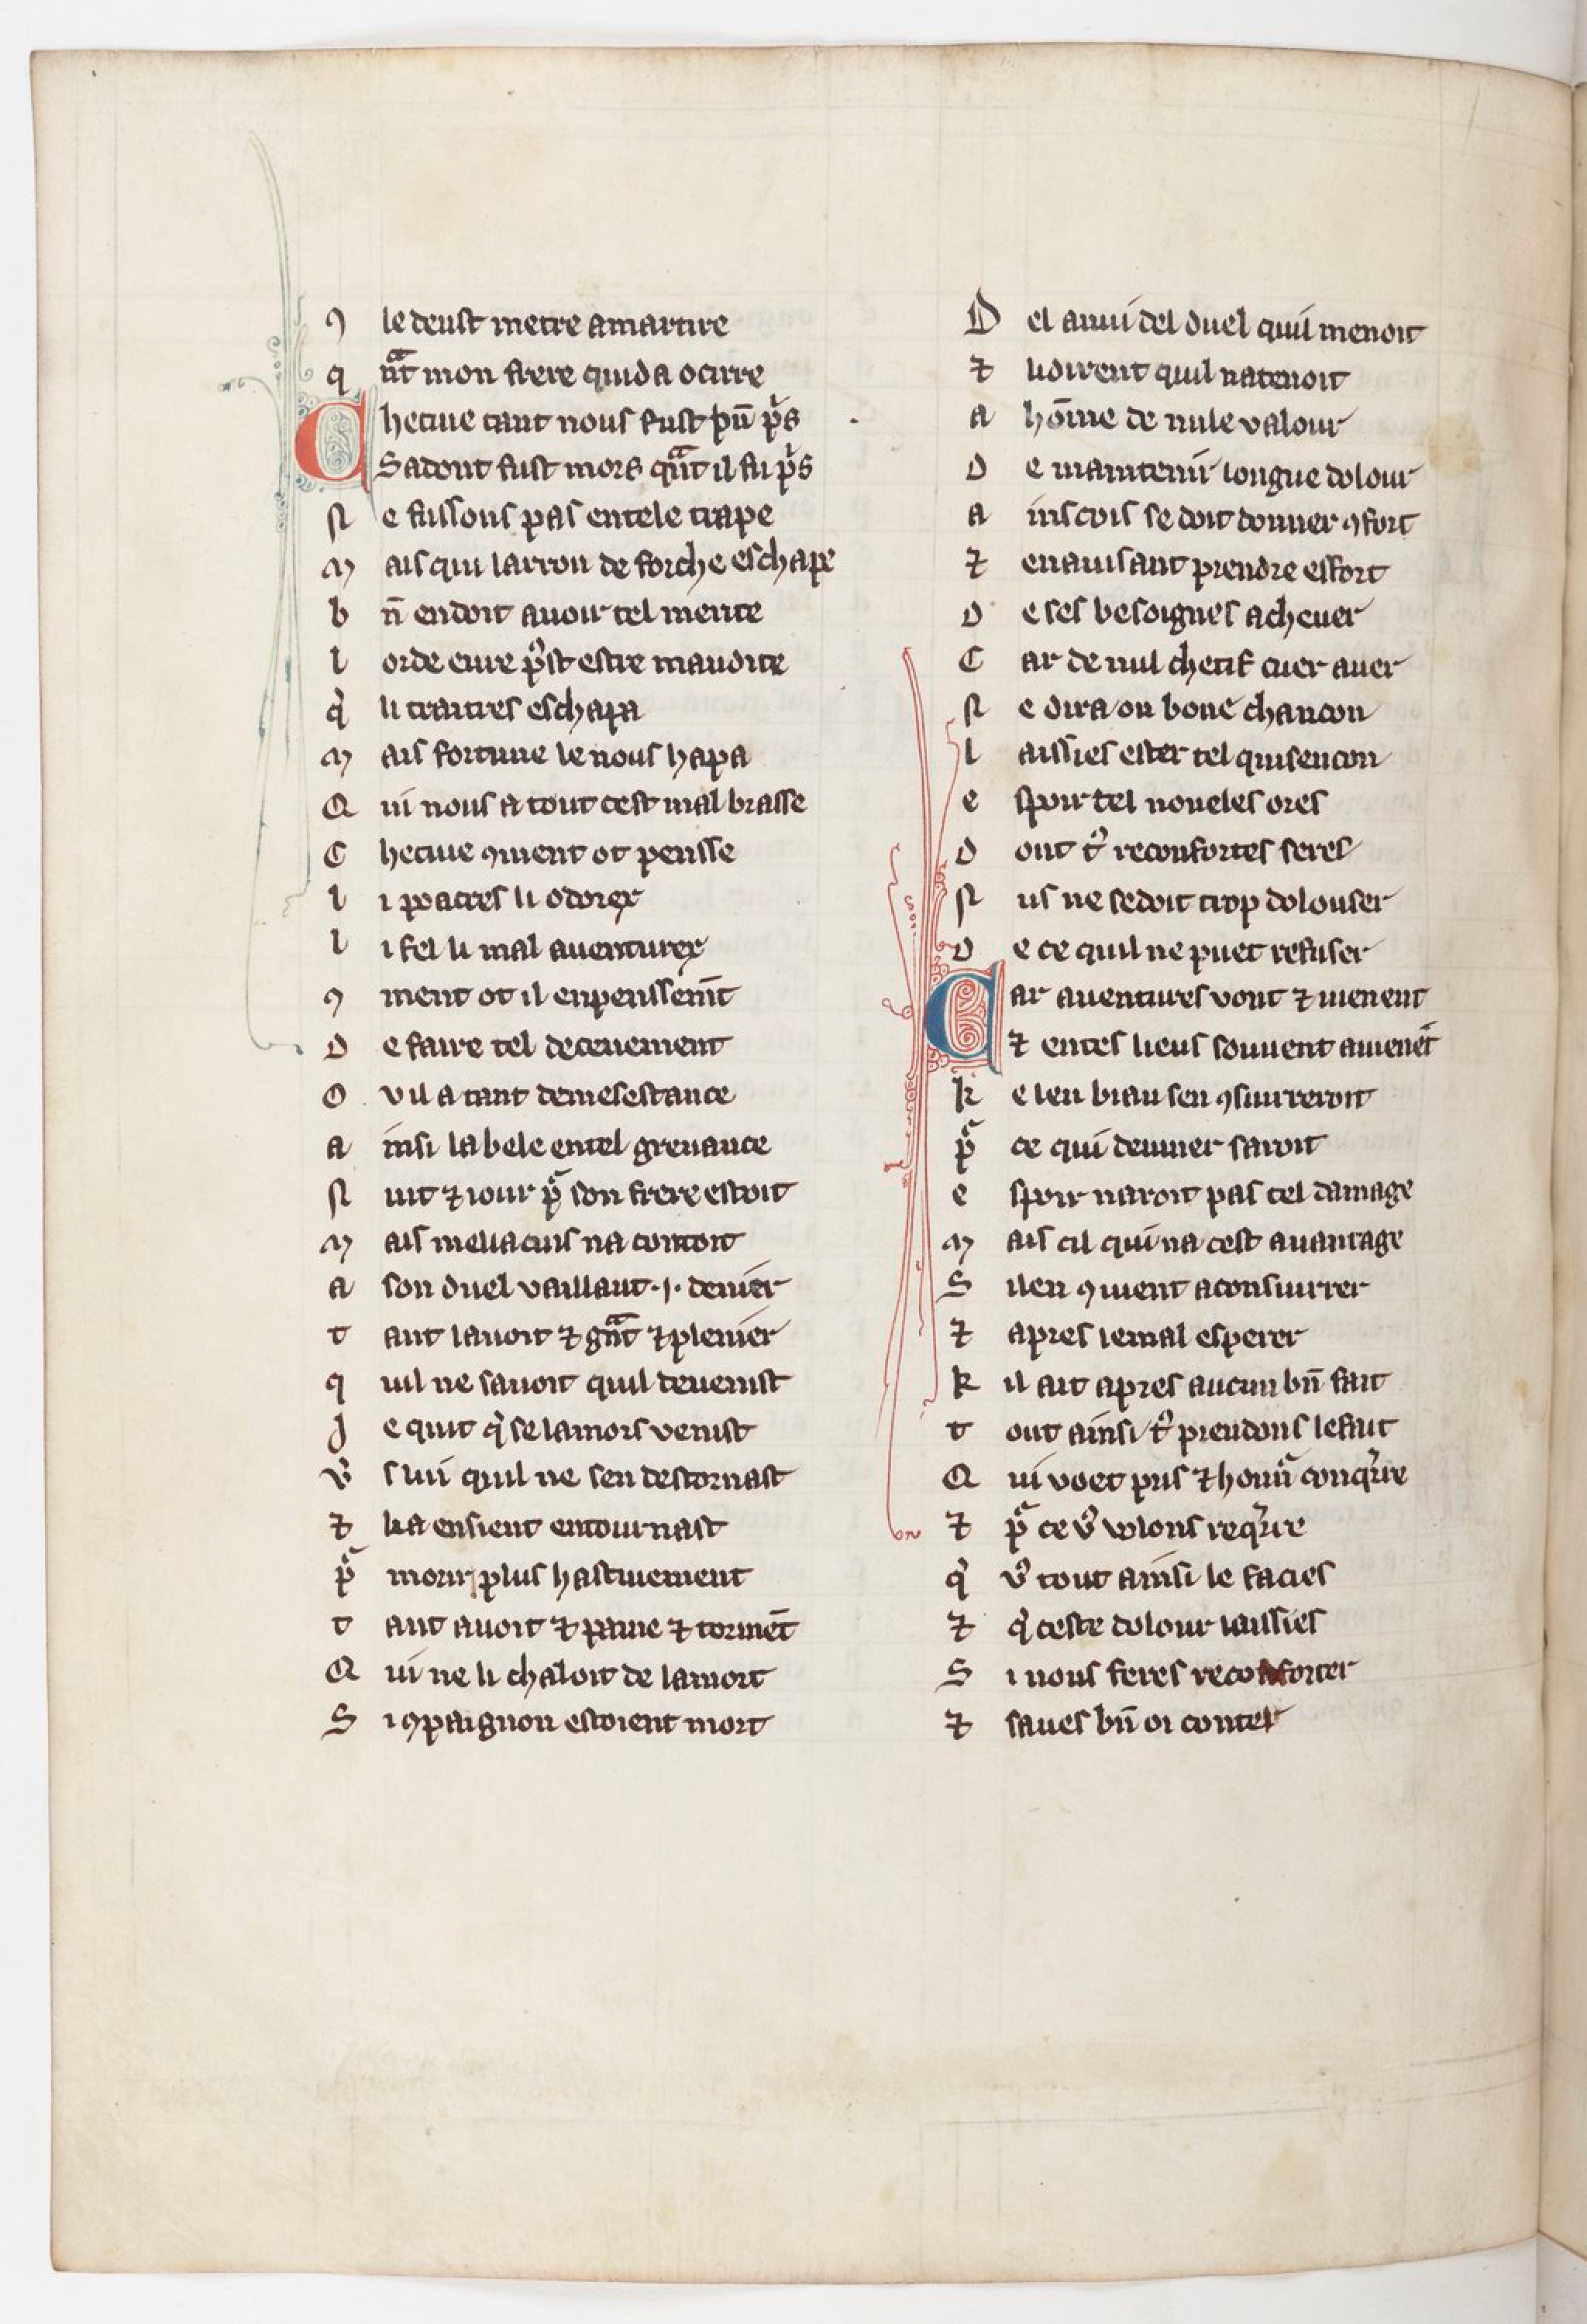 ꝯ le deust metre a martire
q nᵃt mon frere quida ocirre
Chetiue tant nous fust pū pⁱs
S adont fust mors qᵃnt il fu pⁱs
N e fussons pas en tele trape
M ais qui larron de forche eschape
b n̄ en doit auoir tel merite
l orde eure pᵒst estre maudite
qⁱ li traitres eschapa
M ais fortune le nous hapa
Q ui nous a tout cest mal brasse
C hetiue ꝯment ot pensse
l i poacres li odorex
l i fel li mal auenturex
ꝯ ment ot il enpenssemt̄
D e faire tel deceuement
O v il a tant de mesestance
a insi la bele en tel greuance
N uit ⁊ iour pᵃ son frere estoit
M ais meliacins na contoit
a son duel vaillant .j. denier
t ant lauoit ⁊ gᵃnt ⁊ plenier
q uil ne sauoit quil deuenist
J e quit qⁱ se la mors venist
vᵒ s lui quil ne sen destornast
⁊ lia ensient entournast
pᵃ morir plus hastiuement
t ant auoit ⁊ paine ⁊ tormēt
Q ui ne li chaloit de la mort
S i ꝯpaignon estoient mort
D el anui del duel quil menoit
⁊ li dirent quil natenoit
a hōme de nule valour
D e maintenir longue dolour
a inscois se doit donner ꝯfort
⁊ en auisant prendre esfort
D e ses besoignes acheuer
C ar de nul chetif cuer auer
N e dira on bone chancon
l aissies ester tel quisencon
e spoir tel noueles ores
D ont tᵒ reconfortes seres
N us ne se doit trop dolouser
D e ce quil ne puet refuser
Car auentures vont ⁊ uienent
⁊ en tes lieus souuent amenēt
k e len biau sen ꝯsiurreroit
pᵃ ce qui deuiner saroit
e spoir naroit pas tel damage
M ais cil qui na cest auantage
S ilen ꝯuient aconsiurrer
⁊ apres le mal esperer
k il ait apres aucun bn̄ fait
t out ainsi tᵒ prendons le fait
Q ui voet pris ⁊ honnᵃ conqⁱrre
⁊ pᵃ ce vᵒ volons reqⁱrre
qⁱ vᵒ tout ainsi le facies
⁊ qⁱ ceste dolour laissies
S i nous feres reconforter
⁊ saues bn̄ oi conter